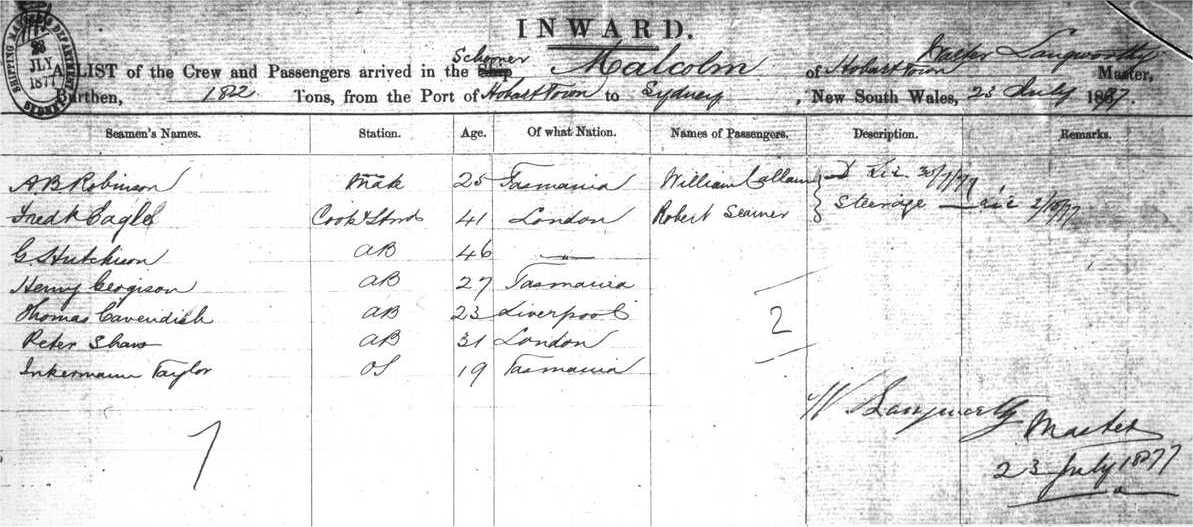 INWARD.
SHIPPING MASTER'S DEPARTMENT
23
JLY
1877
SYDNEY
Schooner Walter Langworthy
A LIST of the Crew and Passengers arrived in the Malcolm of Hobart town Master,
Burthen, 182 Tons, from the Port of Hobart Town to Sydney, New South Wales, 23 July 1877.
Seamen's Names. Station. Age. Of what Nation. Names of Passengers. Description. Remarks.
A B Robinson Mate 25 Tasmania William Callam
Fredk Eagle Cook & Stwd 41 London Robert Seamer Steerage
G Hutchison AB 46 "
Henry AB 27 Tasmania
Thomas Cavendish AB 23 Liverpool
2
Peter Shaw AB 31 London
Inkermann Taylor OS 19 Tasmania
7
W Langworthy
Master
23 July 1877